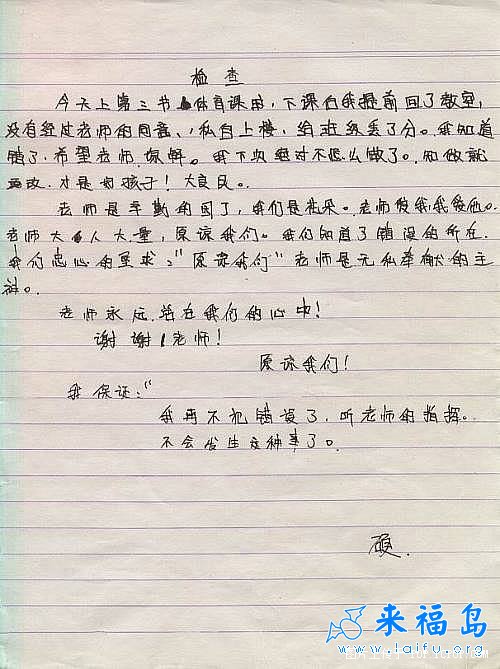 检查
今天上第三节体育课时,下课后我提前回了教室,
没有经过老师的同意、私自上楼,给班级丢了分。我知道
错了,希望老师原解。我下次绝对不怎么做了。知做就
改,才是好孩子!大良民。
老师是辛勤的园丁,我们是花朵。老师使我我爱他。
老师大人大量,原谅我们。我们知道了错误的所在,
我们忠心的呈求:“原谅我们”老师是无私奉献的主
老师永远活在我们的心中!
谢谢老师!
原谅我们!
我保证:“
我再不犯错误了,听老师的指挥。
不会发生这种事了。
来福岛
www.laifu.org